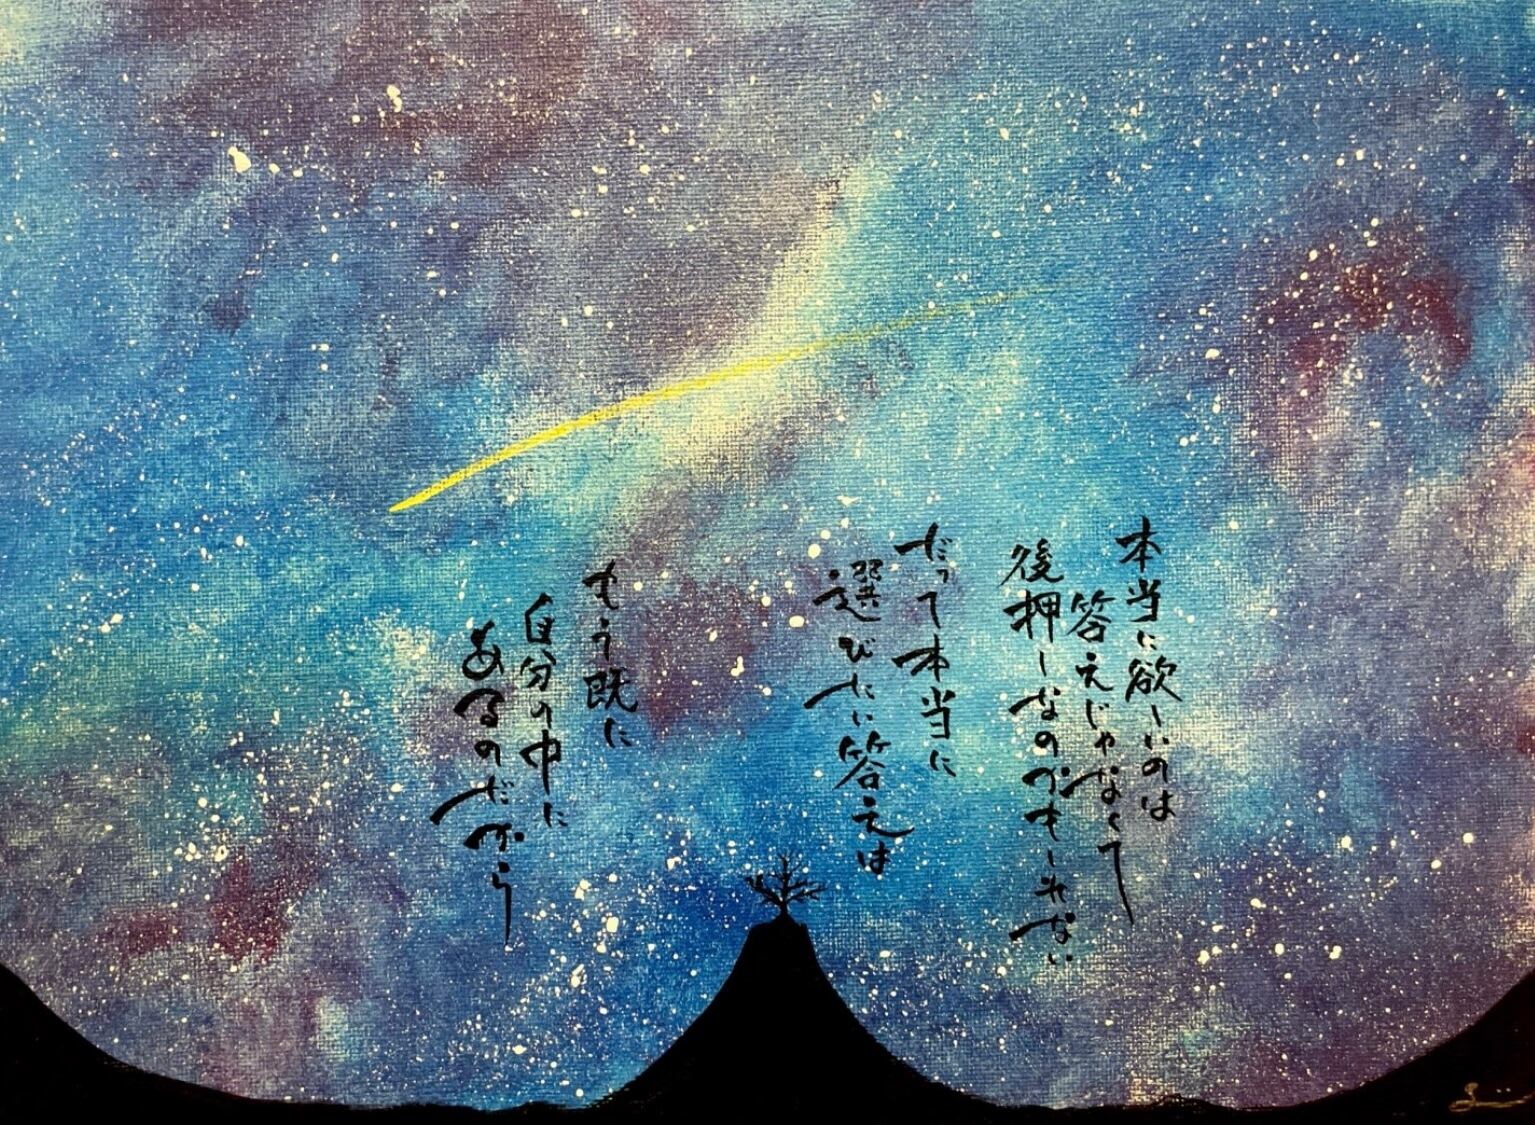 本当に欲しいのは
答えじゃなくて
後押しなのかもしれない
だって本当に
選びたい答えは
もう既に
自分の中に
あるのだから